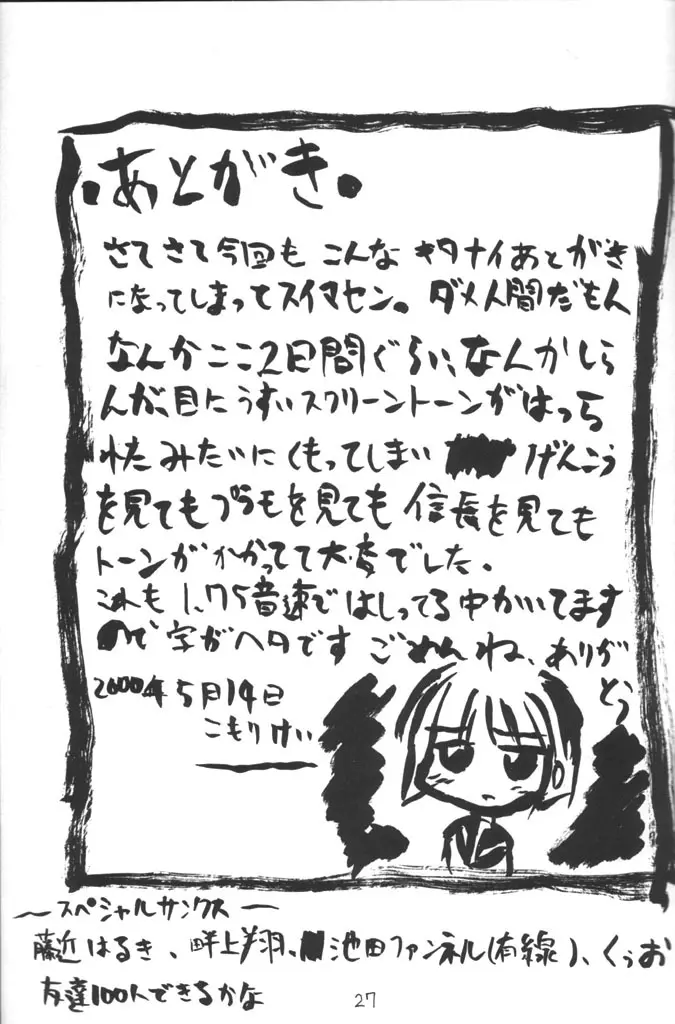 ・あとがき・
さてさて今回も こんな キタナイあとがき
になってしまってスイマセン。ダメ人間だもん
なんかここ2日間ぐらい、なんかしら
んが、目にうすいスクリーントーンがはっら
れたみたいにくもってしまい げんこう
を見てもプラモを見ても 信長を見ても
トーンがかかってて大変でした。
これも 1.75音速ではしってる中かいてます
ので字がヘタです ごめんね、ありが
とう
2000年5月14日
こもりけい
〜スペシャルサンクス〜
藤近はるき、畔上翔、池田ファンネル(有線)、くぅお
友達100人できるかな
27